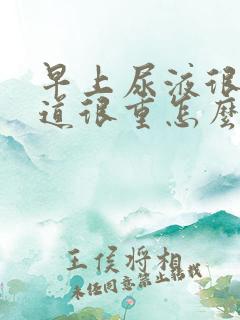 早上尿液很
道很重怎麽
王侯将相
未经同意禁止转载